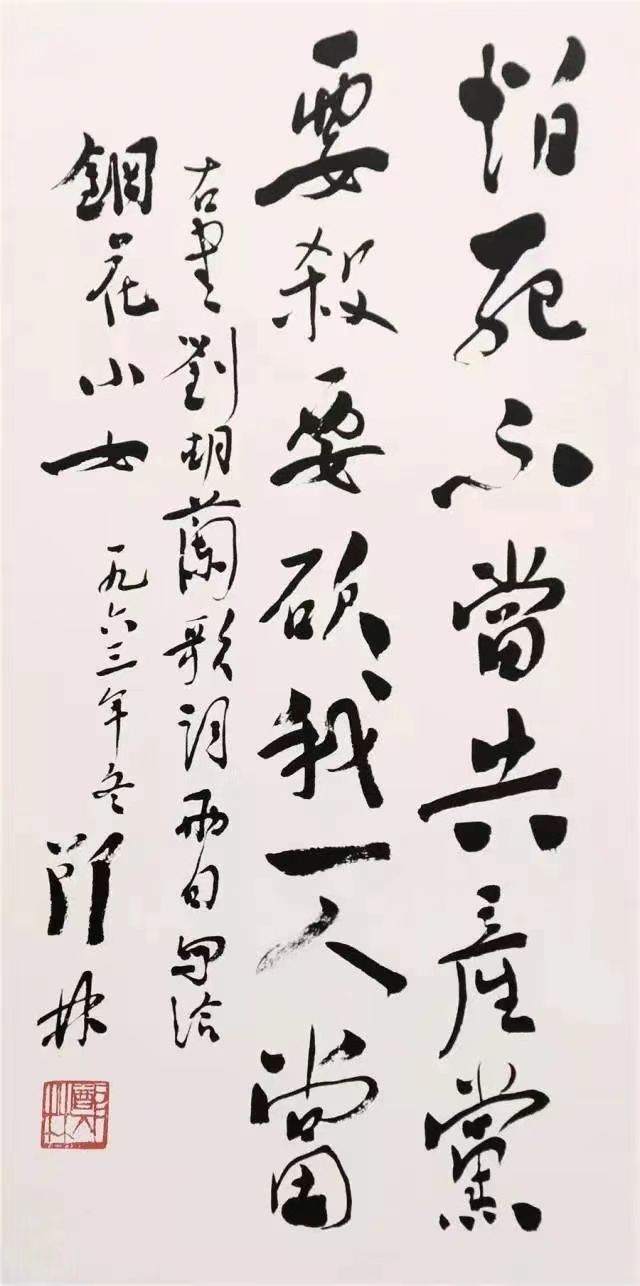 怕死不當共產黨
要殺要砍我一人當
右書劉胡蘭歌詞兩句寫給
鋼花小女 一九六三年冬 林